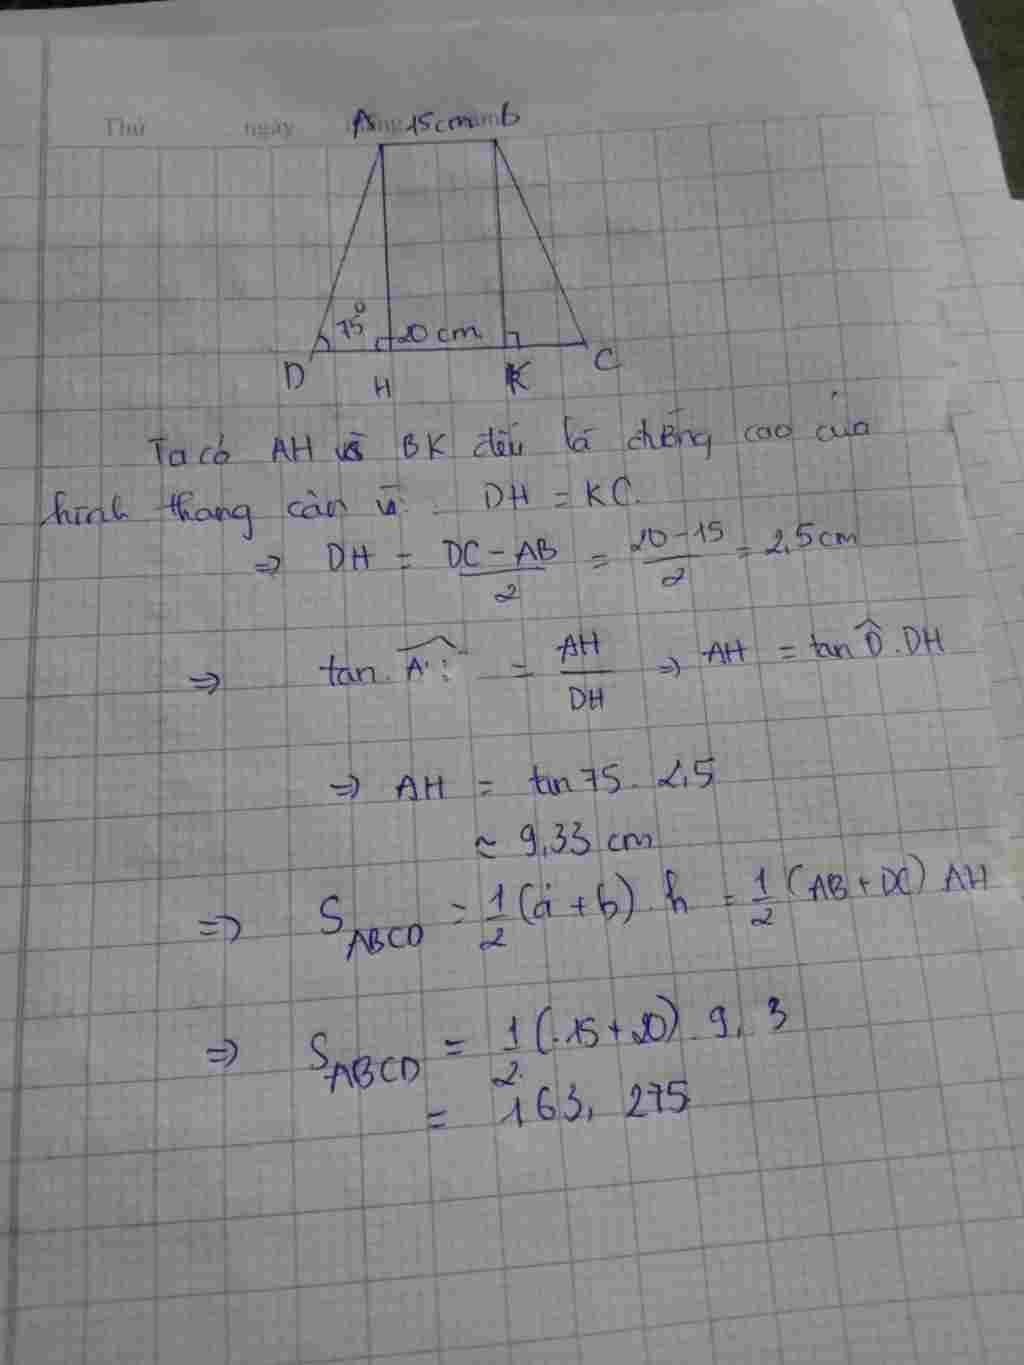 Thứ ngày
A 15cm b
75° 20 cm
D H K C
Ta có AH và BK đều là đường cao của
hình thang cân DH = KC.
⇒ DH = (DC - AB)/2 = (20 - 15)/2 = 2,5cm
⇒ tan = AH/DH ⇒ AH = tan D̂ . DH
⇒ AH = tan 75 . 2,5
≈ 9,33 cm
⇒ S_ABCD = 1/2 (a + b) . h = 1/2 (AB + DC) AH
⇒ S_ABCD = 1/2 (15 + 20) . 9,3
= 163,275